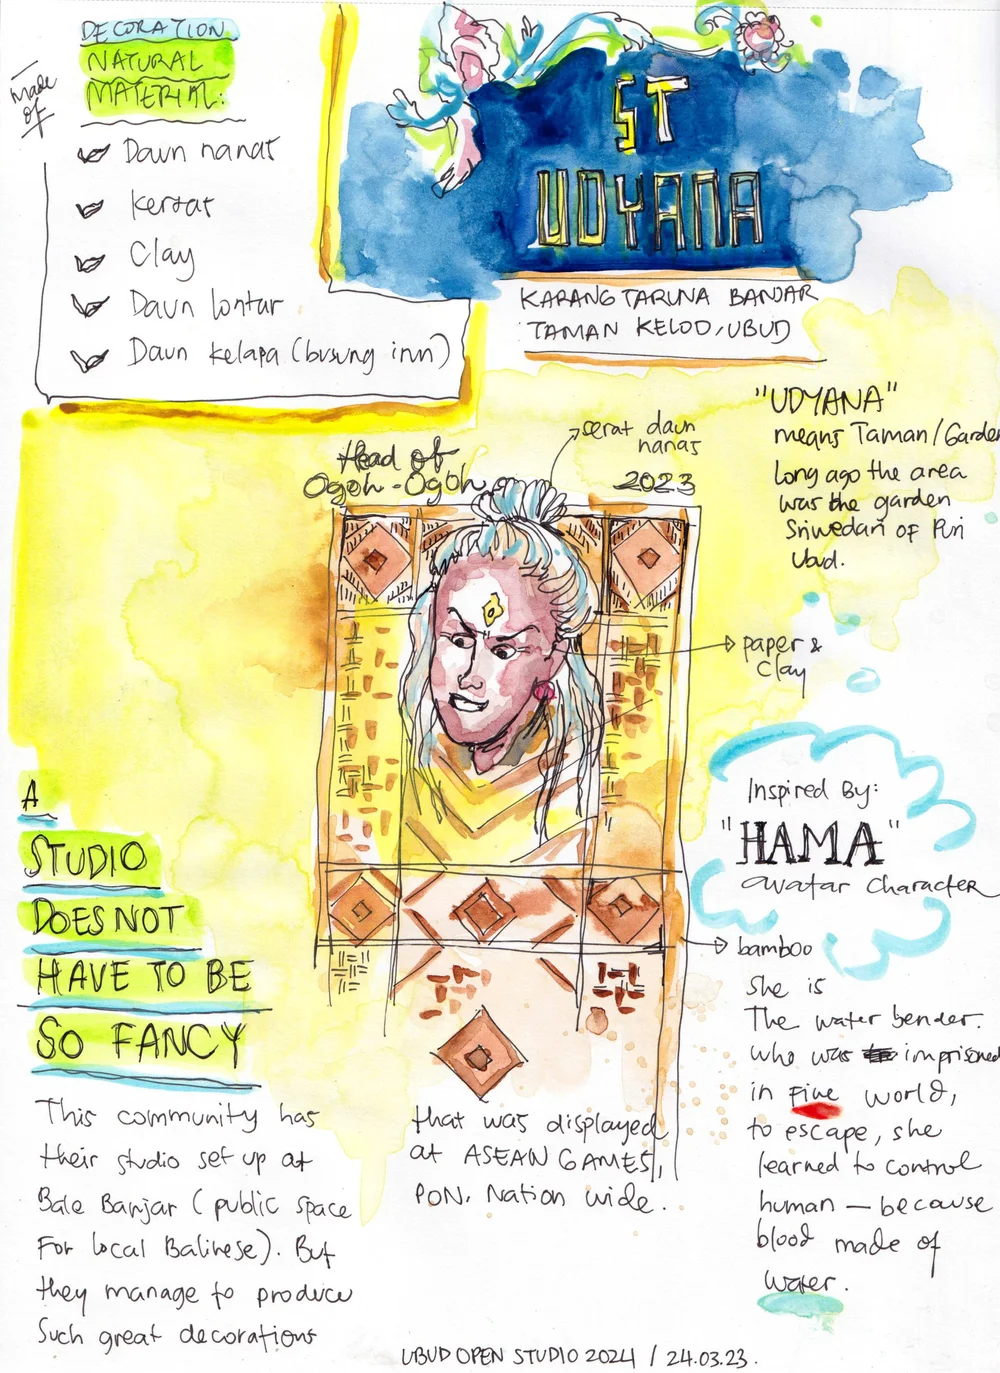 DECORATION
NATURAL
MATERIAL:
made
of
Daun nanas
kertas
Clay
Daun lontar
Daun kelapa (busung inn)
ST
UDYANA
KARANG TARUNA BANJAR
TAMAN KELOD, UBUD
"UDYANA"
means Taman/Garden
long ago the area
was the garden
Sriwedari of Puri
Ubud.
serat daun
nanas
Head of
Ogoh-Ogoh
2023
paper &
clay
Inspired By:
"HAMA"
avatar character
bamboo
She is
The water bender.
who was imprisoned
in Fire world,
to escape, she
learned to control
human – because
blood made of
water.
A
STUDIO
DOES NOT
HAVE TO BE
SO FANCY
This community has
their studio set up at
Bale Banjar (public space
For local Balinese). But
they manage to produce
Such great decorations
that was displayed
at ASEAN GAMES,
PON, Nation wide.
UBUD OPEN STUDIO 2024 / 24.03.23.